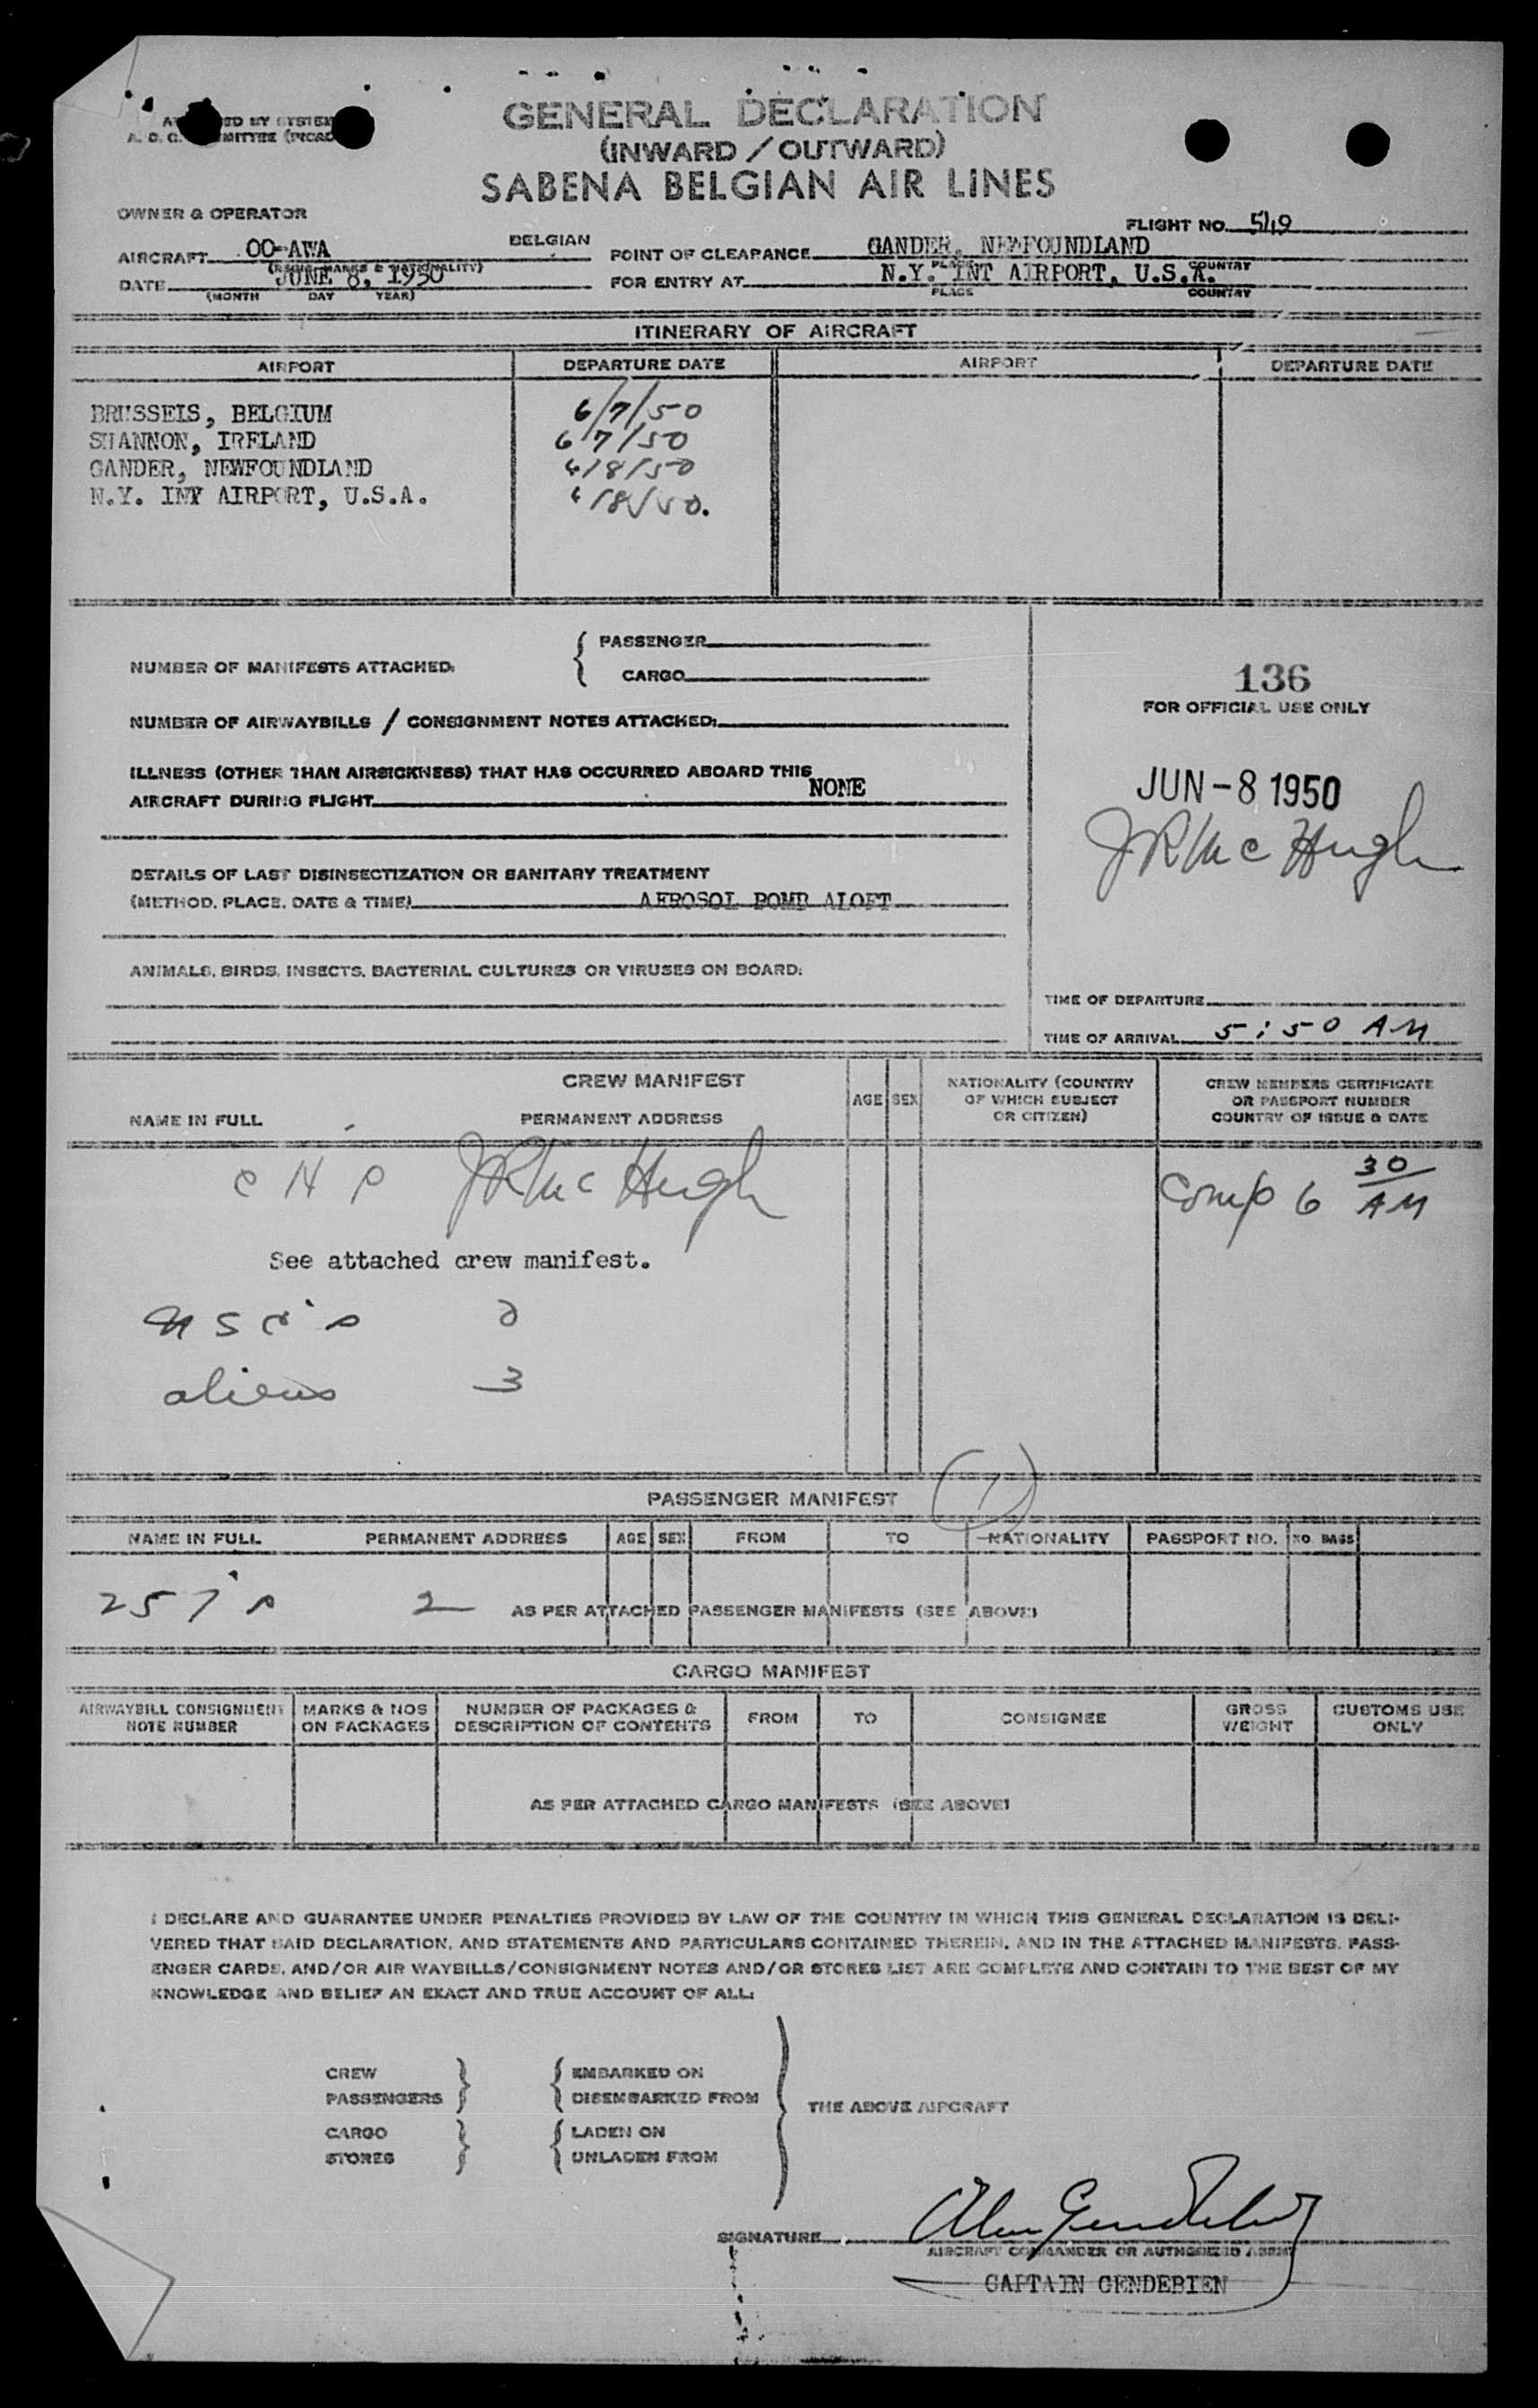 GENERAL DECLARATION
(INWARD / OUTWARD)
SABENA BELGIAN AIR LINES
OWNER & OPERATOR
FLIGHT NO. 549
AIRCRAFT OO-AWA BELGIAN
(REGIS. MARKS & NATIONALITY)
POINT OF CLEARANCE GANDER, NEWFOUNDLAND
PLACE COUNTRY
DATE JUNE 8, 1950
(MONTH DAY YEAR)
FOR ENTRY AT N.Y. INT AIRPORT, U.S.A.
PLACE COUNTRY
ITINERARY OF AIRCRAFT
AIRPORT DEPARTURE DATE AIRPORT DEPARTURE DATE
BRUSSELS, BELGIUM 6/7/50
SHANNON, IRELAND 6/7/50
GANDER, NEWFOUNDLAND 6/8/50
N.Y. INT AIRPORT, U.S.A. 6/8/50.
NUMBER OF MANIFESTS ATTACHED:
PASSENGER
CARGO
NUMBER OF AIRWAYBILLS / CONSIGNMENT NOTES ATTACHED:
ILLNESS (OTHER THAN AIRSICKNESS) THAT HAS OCCURRED ABOARD THIS
AIRCRAFT DURING FLIGHT NONE
DETAILS OF LAST DISINSECTIZATION OR SANITARY TREATMENT
(METHOD, PLACE, DATE & TIME) AEROSOL BOMB ALOFT
ANIMALS, BIRDS, INSECTS, BACTERIAL CULTURES OR VIRUSES ON BOARD:
136
FOR OFFICIAL USE ONLY
JUN -8 1950
JR McHugh
TIME OF DEPARTURE
TIME OF ARRIVAL 5:50 AM
CREW MANIFEST
NAME IN FULL PERMANENT ADDRESS
AGE SEX
NATIONALITY (COUNTRY
OF WHICH SUBJECT
OR CITIZEN)
CREW MEMBERS CERTIFICATE
OR PASSPORT NUMBER
COUNTRY OF ISSUE & DATE
JR McHugh
Comp 6 30 AM
See attached crew manifest.
aliens 3
PASSENGER MANIFEST
NAME IN FULL PERMANENT ADDRESS AGE SEX FROM TO NATIONALITY PASSPORT NO. NO. BAGS
2
AS PER ATTACHED PASSENGER MANIFESTS (SEE ABOVE)
CARGO MANIFEST
AIRWAYBILL CONSIGNMENT
NOTE NUMBER
MARKS & NOS
ON PACKAGES
NUMBER OF PACKAGES &
DESCRIPTION OF CONTENTS
FROM TO CONSIGNEE
GROSS
WEIGHT
CUSTOMS USE
ONLY
AS PER ATTACHED CARGO MANIFESTS (SEE ABOVE)
I DECLARE AND GUARANTEE UNDER PENALTIES PROVIDED BY LAW OF THE COUNTRY IN WHICH THIS GENERAL DECLARATION IS DELI-
VERED THAT SAID DECLARATION, AND STATEMENTS AND PARTICULARS CONTAINED THEREIN, AND IN THE ATTACHED MANIFESTS, PASS-
ENGER CARDS, AND/OR AIR WAYBILLS/CONSIGNMENT NOTES AND/OR STORES LIST ARE COMPLETE AND CONTAIN TO THE BEST OF MY
KNOWLEDGE AND BELIEF AN EXACT AND TRUE ACCOUNT OF ALL:
CREW
PASSENGERS
EMBARKED ON
DISEMBARKED FROM
THE ABOVE AIRCRAFT
CARGO
STORES
LADEN ON
UNLADEN FROM
SIGNATURE
AIRCRAFT COMMANDER OR AUTHORIZED AGENT
CAPTAIN GENDEBIEN